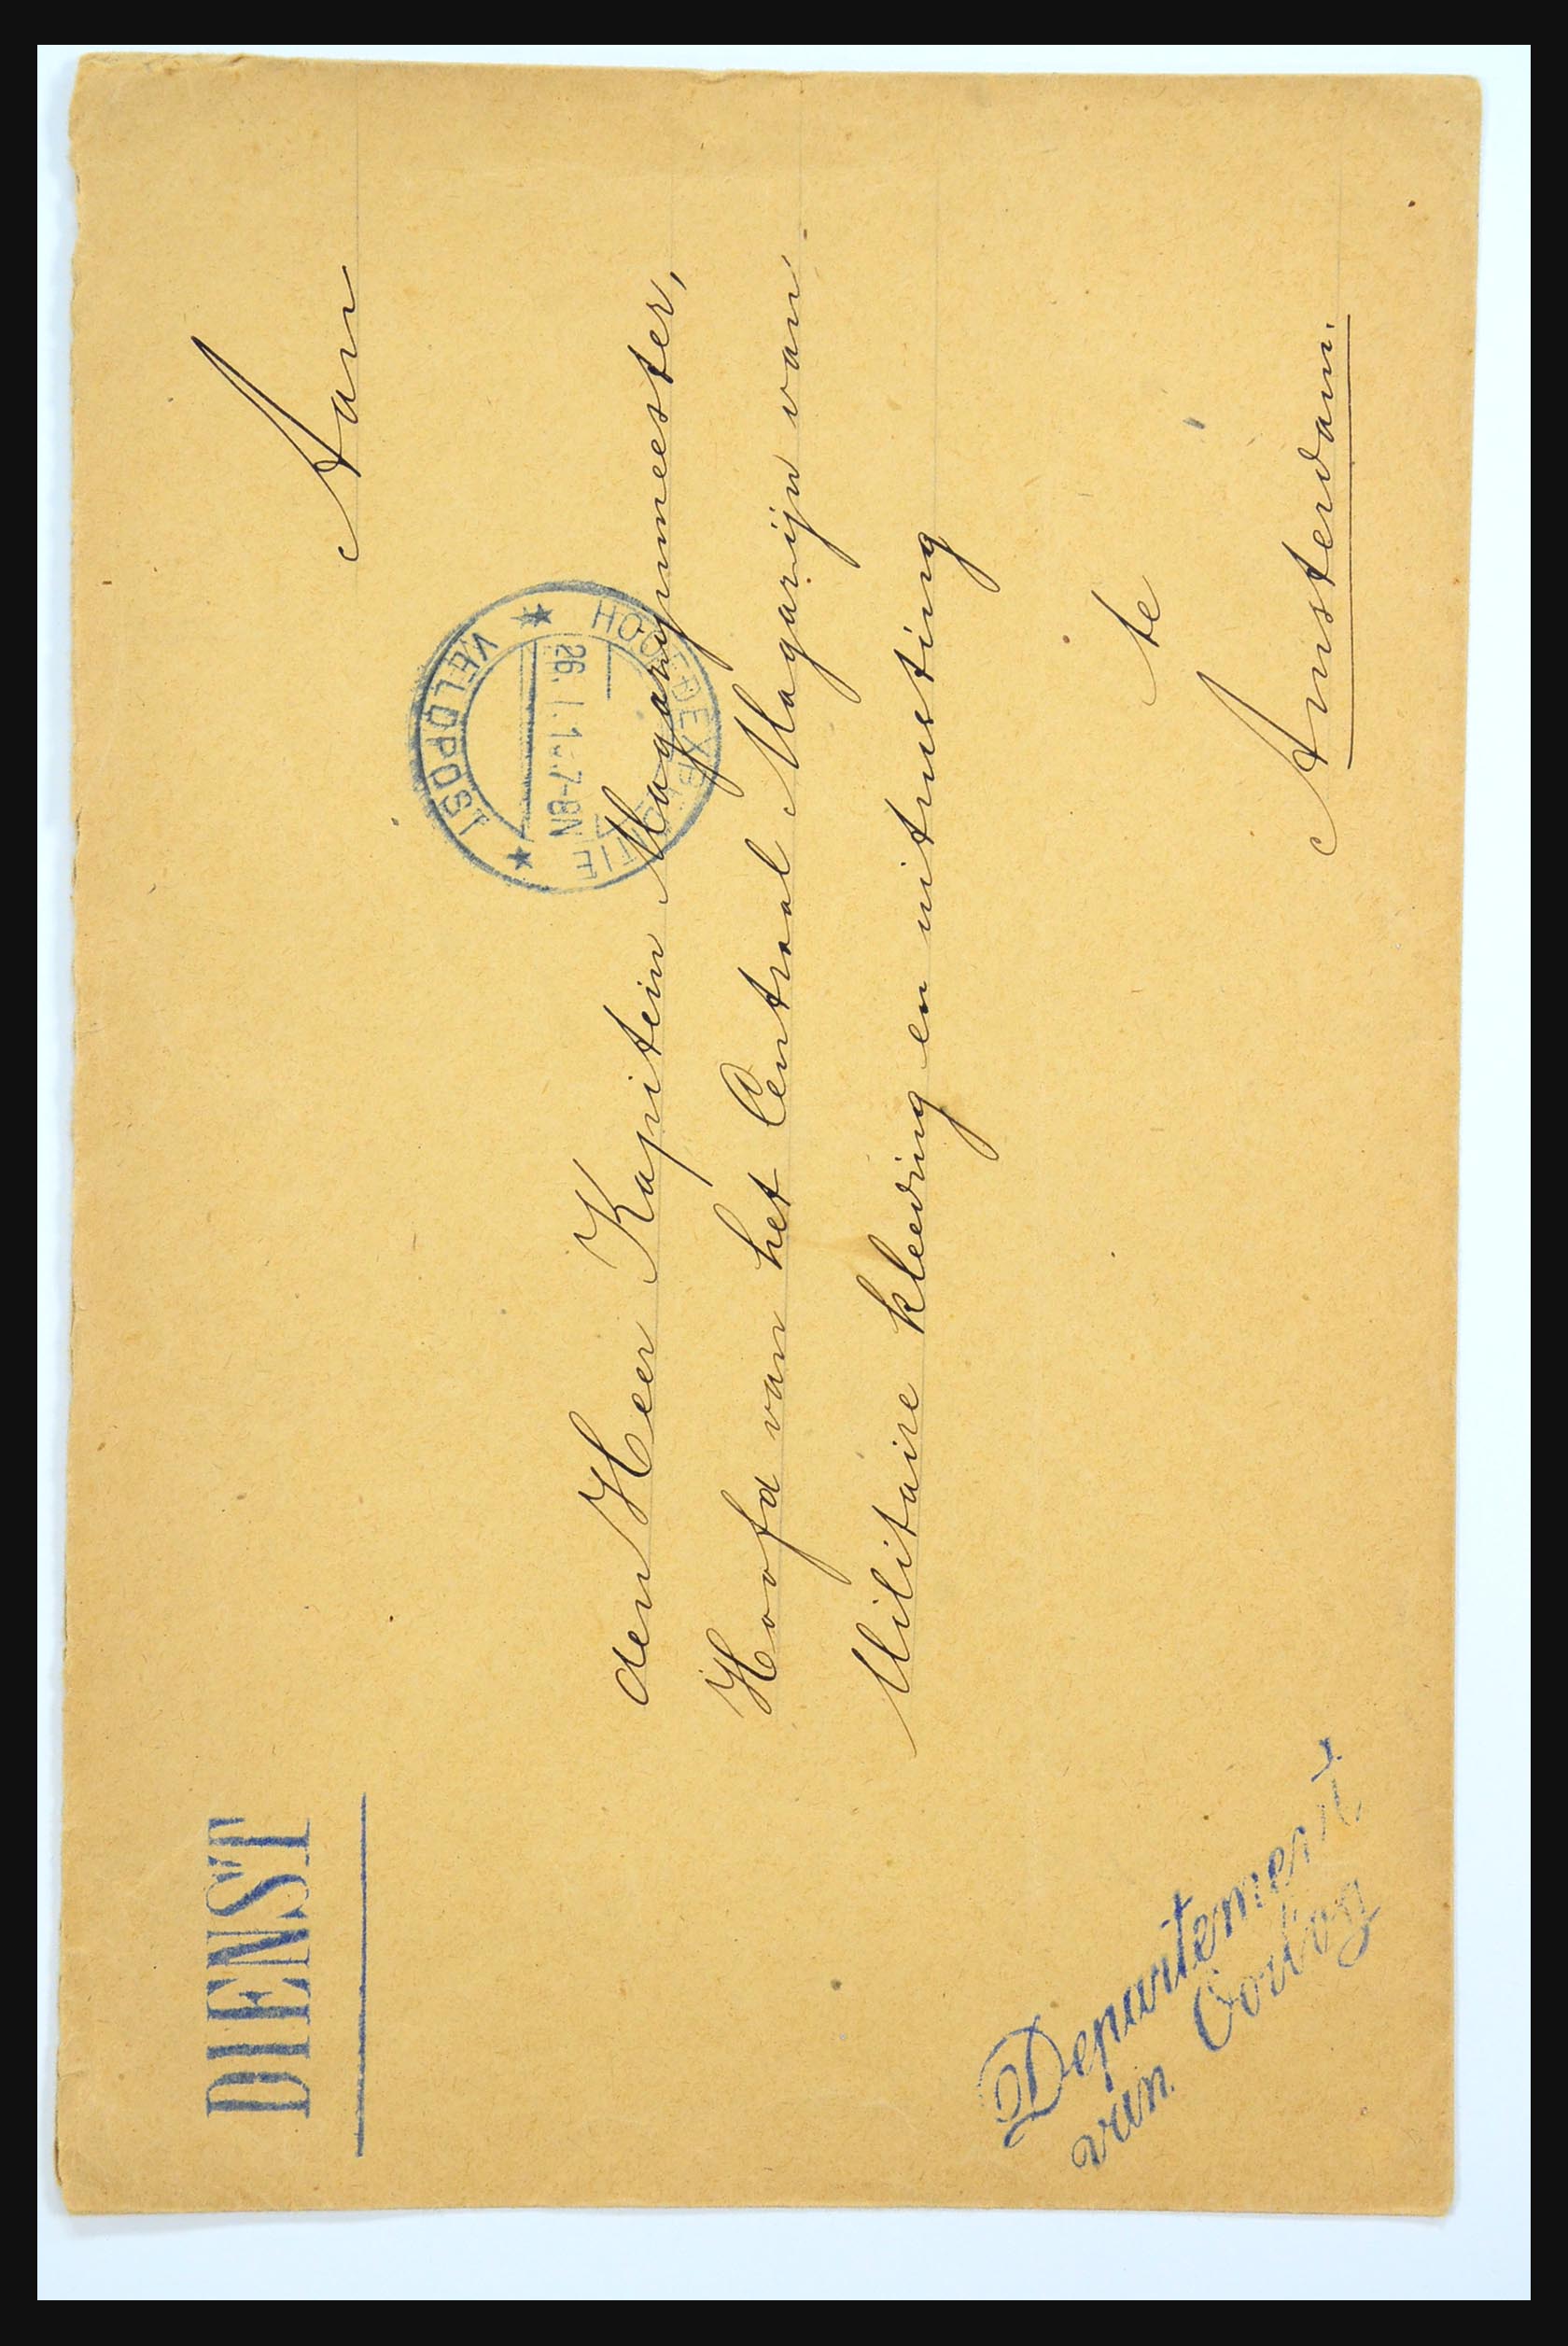 DIENST
Aan
VELDPOST
26. 1. 1 .7-8N
HOOFDEXPEDITIE
den Heer Kapitein Magazijnmeester,
Hoofd van het Centraal Magazijn van
Militaire kleeding en uitrusting
te
Amsterdam.
Departement
van Oorlog